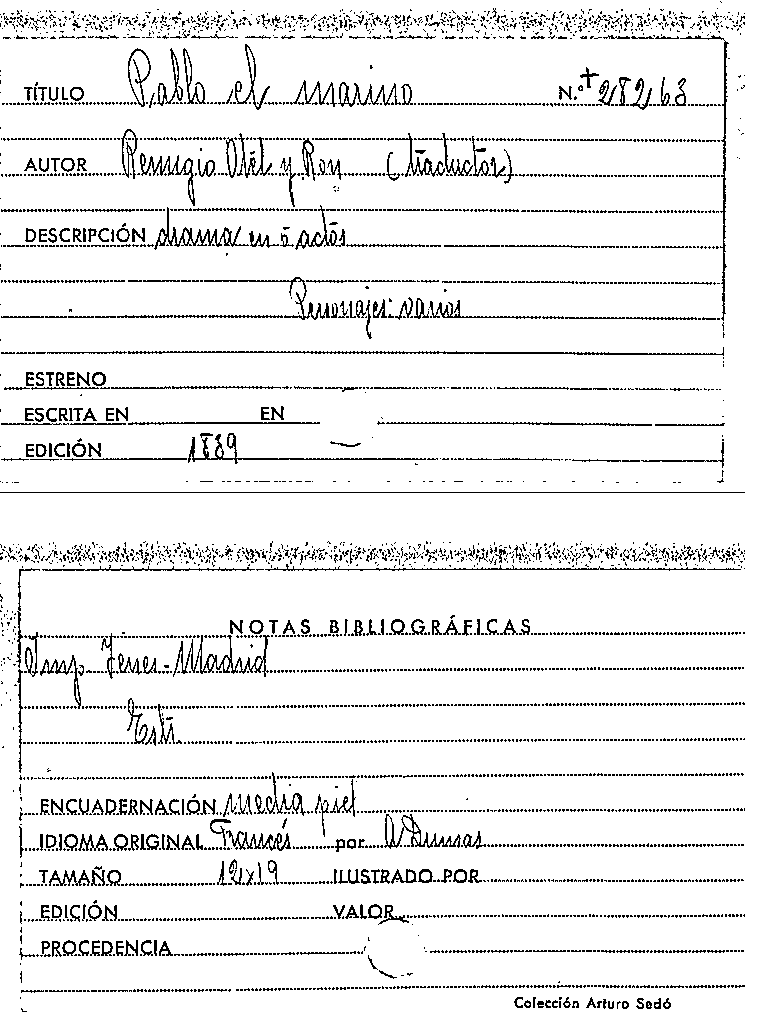 TÍTULO Pablo el marino N.º +28263
AUTOR Remigio Otel y Ron (traductor)
DESCRIPCIÓN drama en 5 actos
Personajes: varios
ESTRENO
ESCRITA EN EN
EDICIÓN 1839
NOTAS BIBLIOGRÁFICAS
Imp. Yenes-Madrid
ENCUADERNACIÓN media piel
IDIOMA ORIGINAL Francés por A Dumas
TAMAÑO 12x19 ILUSTRADO POR
EDICIÓN VALOR
PROCEDENCIA
Colección Arturo Sedó